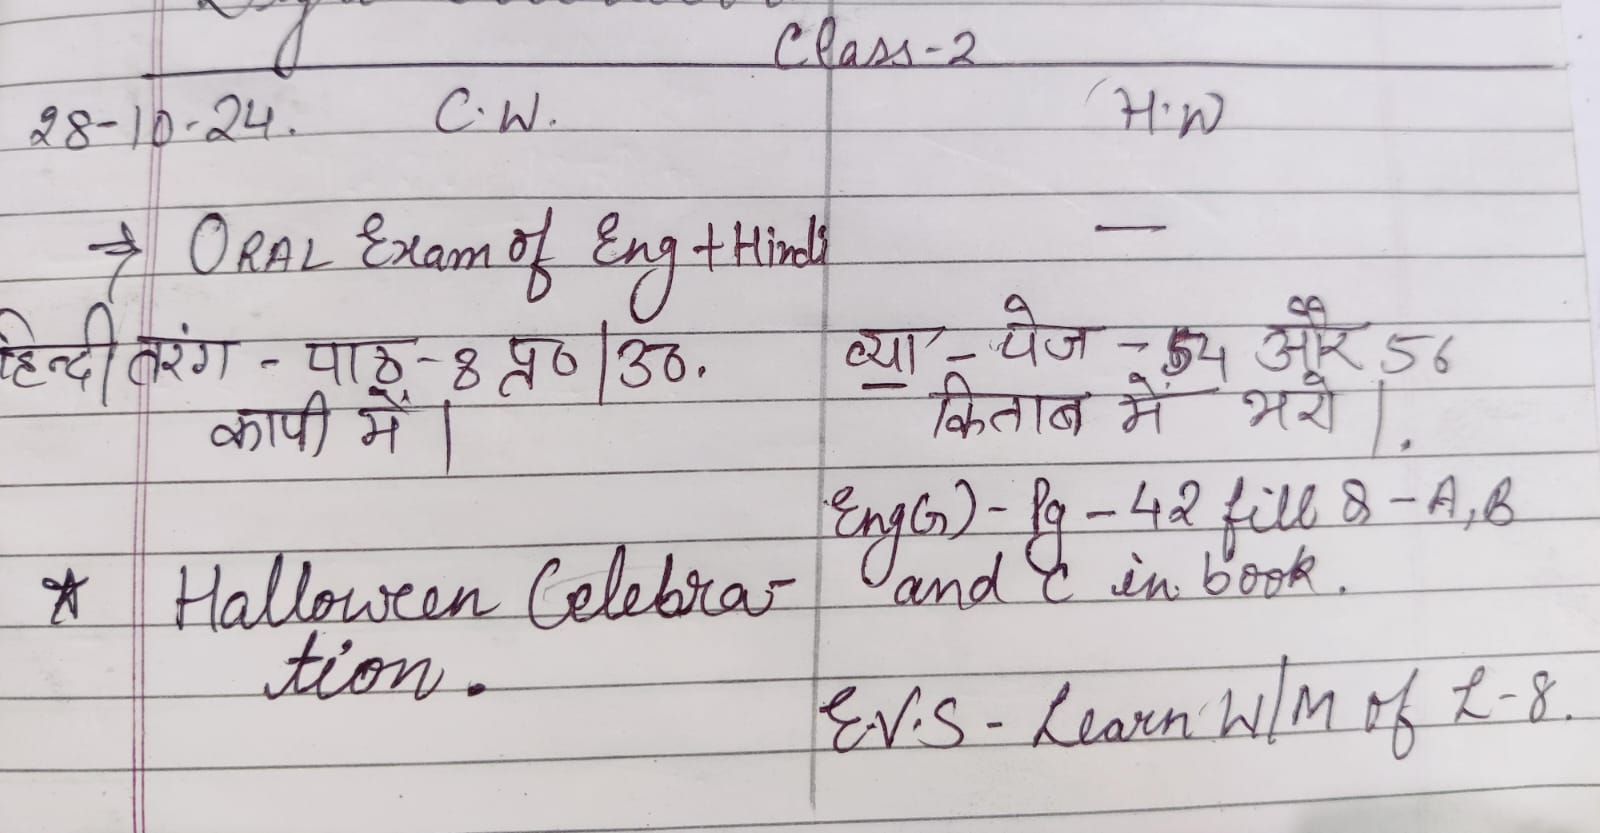 Class-2
28-10-24. C.W. H.W
→ ORAL Exam of Eng + Hindi —
हिन्दी तरंग - पाठ-8 प्र०/उ०.
कापी में।
व्या - पेज - 54 और 56
किताब में भरो।.
Eng(G) - Pg - 42 fill & - A, B
and C in book.
* Halloween Celebra-
tion.
E.V.S - Learn W/M of L-8.